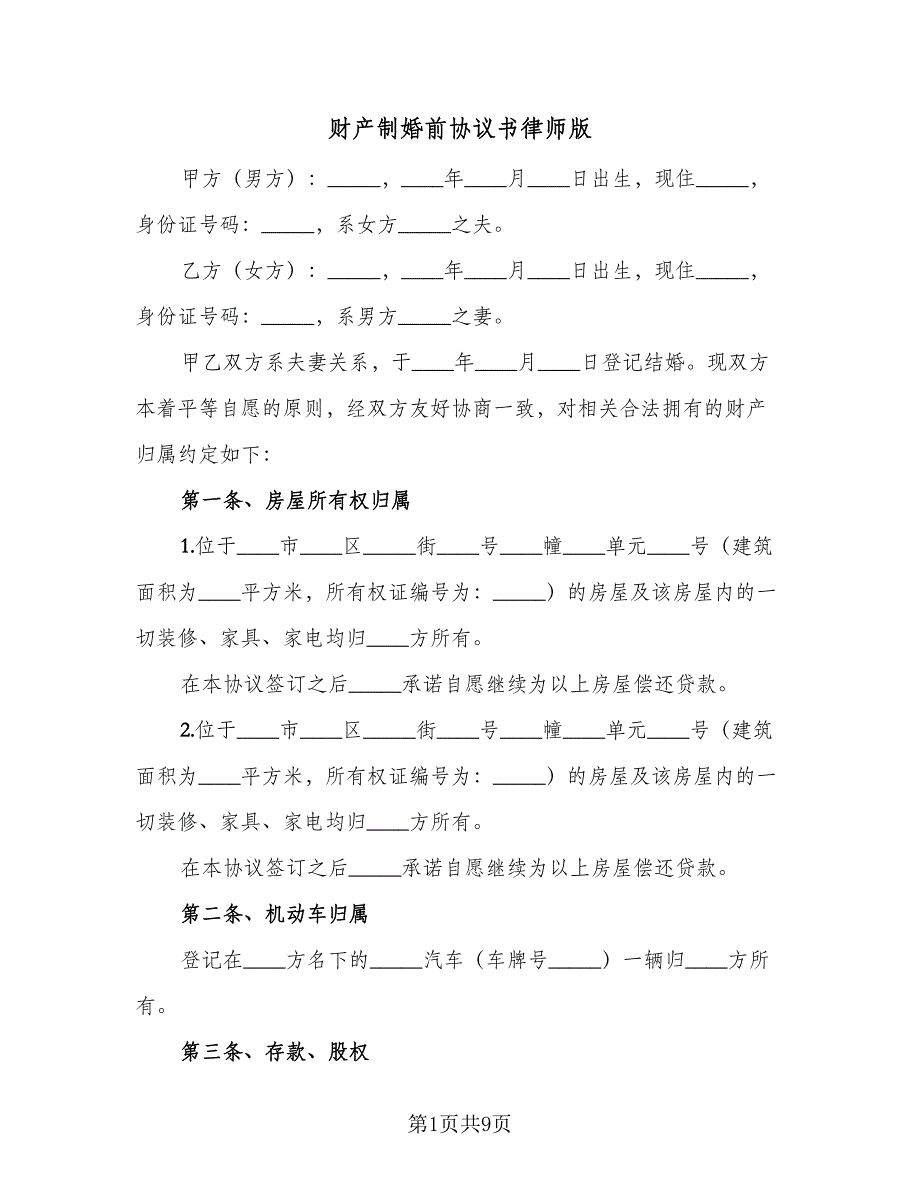 财产制婚前协议书律师版
甲方（男方）：_____，____年____月____日出生，现住_____，
身份证号码：_____，系女方_____之夫。
乙方（女方）：_____，____年____月____日出生，现住_____，
身份证号码：_____，系男方_____之妻。
甲乙双方系夫妻关系，于____年____月____日登记结婚。现双方
本着平等自愿的原则，经双方友好协商一致，对相关合法拥有的财产
归属约定如下：
第一条、房屋所有权归属
1.位于____市____区_____街____号____幢____单元____号（建筑
面积为____平方米，所有权证编号为：_____）的房屋及该房屋内的一
切装修、家具、家电均归____方所有。
在本协议签订之后_____承诺自愿继续为以上房屋偿还贷款。
2.位于____市____区_____街____号____幢____单元____号（建筑
面积为____平方米，所有权证编号为：_____）的房屋及该房屋内的一
切装修、家具、家电均归____方所有。
在本协议签订之后_____承诺自愿继续为以上房屋偿还贷款。
第二条、机动车归属
登记在____方名下的_____汽车（车牌号_____）一辆归____方所
有。
第三条、存款、股权
第1页共9页